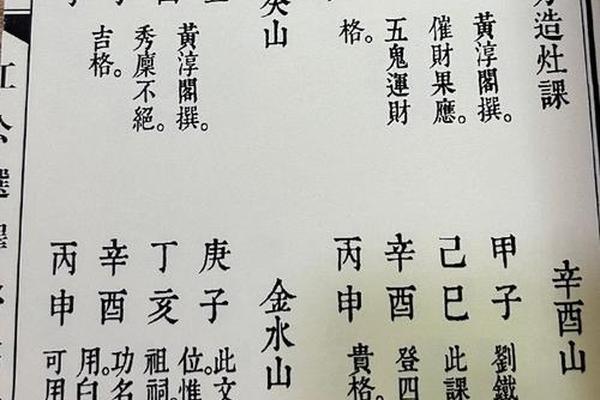 造灶課
黃淳閣撰。
催財果應。
五鬼運財
格。
癸山
黃淳閣撰。
秀廩不絕。
吉格。
辛酉山
甲子
己巳
辛酉
丙申
劉鐵
此課
登四
貴格。
金水山
庚子
丁亥
辛酉
丙申
此文
位。惟
祖祠。
功名
用。白
可用
江公選擇